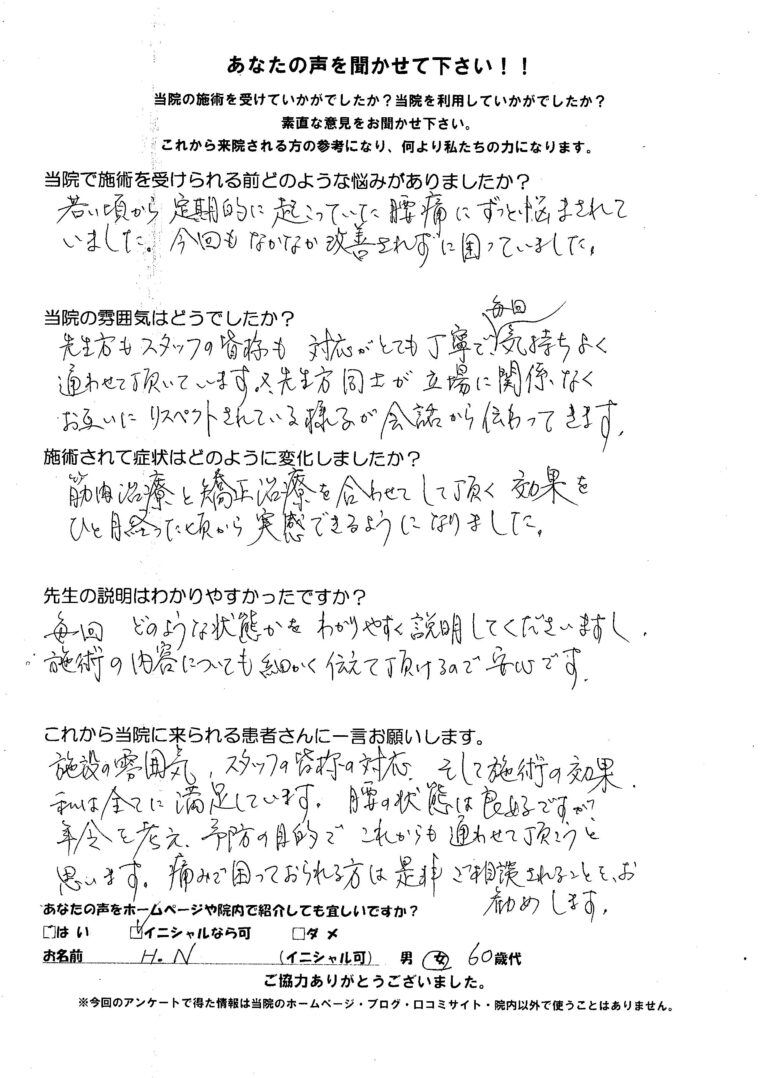 あなたの声を聞かせて下さい！！
当院の施術を受けていかがでしたか？当院を利用していかがでしたか？
素直な意見をお聞かせ下さい。
これから来院される方の参考になり、何より私たちの力になります。
当院で施術を受けられる前どのような悩みがありましたか？
若い頃から 定期的に 起こっていた 腰痛に ずっと悩まされて
いました。今回も なかなか 改善されずに 困っていました。
当院の雰囲気はどうでしたか？
毎回
先生方も スタッフの皆様も 対応がとても 丁寧で、気持ちよく
通わせて頂いています。又、先生方 同士が 立場に 関係なく
お互いに リスペクトされている 様子が 会話から 伝わってきます。
施術されて症状はどのように変化しましたか？
筋肉治療と矯正治療を合わせてして頂く 効果を
ひと月経った頃から 実感できるようになりました。
先生の説明はわかりやすかったですか？
毎回 どのような状態かを わかりやすく 説明してくださいますし、
施術の内容についても 細かく 伝えて頂けるので 安心です。
これから当院に来られる患者さんに一言お願いします。
施設の雰囲気、スタッフの皆様の対応、そして施術の効果、
私は全てに 満足しています。腰の状態は良好ですが、
年令を考え、予防の目的で これからも 通わせて頂こうと
思います。痛みで困っておられる方は 是非 ご相談されることを、お
勧めします。
あなたの声をホームページや院内で紹介しても宜しいですか？
□はい ☑イニシャルなら可 □ダメ
お名前 H.N (イニシャル可) 男 女 60歳代
ご協力ありがとうございました。
※今回のアンケートで得た情報は当院のホームページ・ブログ・口コミサイト・院内以外で使うことはありません。